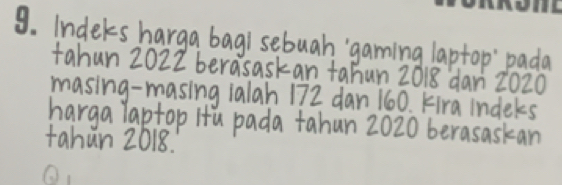 9. Indeks harga bagi sebuah 'gaming laptop' pada
tahun 2022 berasaskan tahun 2018 dan 2020
masing-masing ialah 172 dan 160. Kira indeks
harga laptop itu pada tahun 2020 berasaskan
tahun 2018.